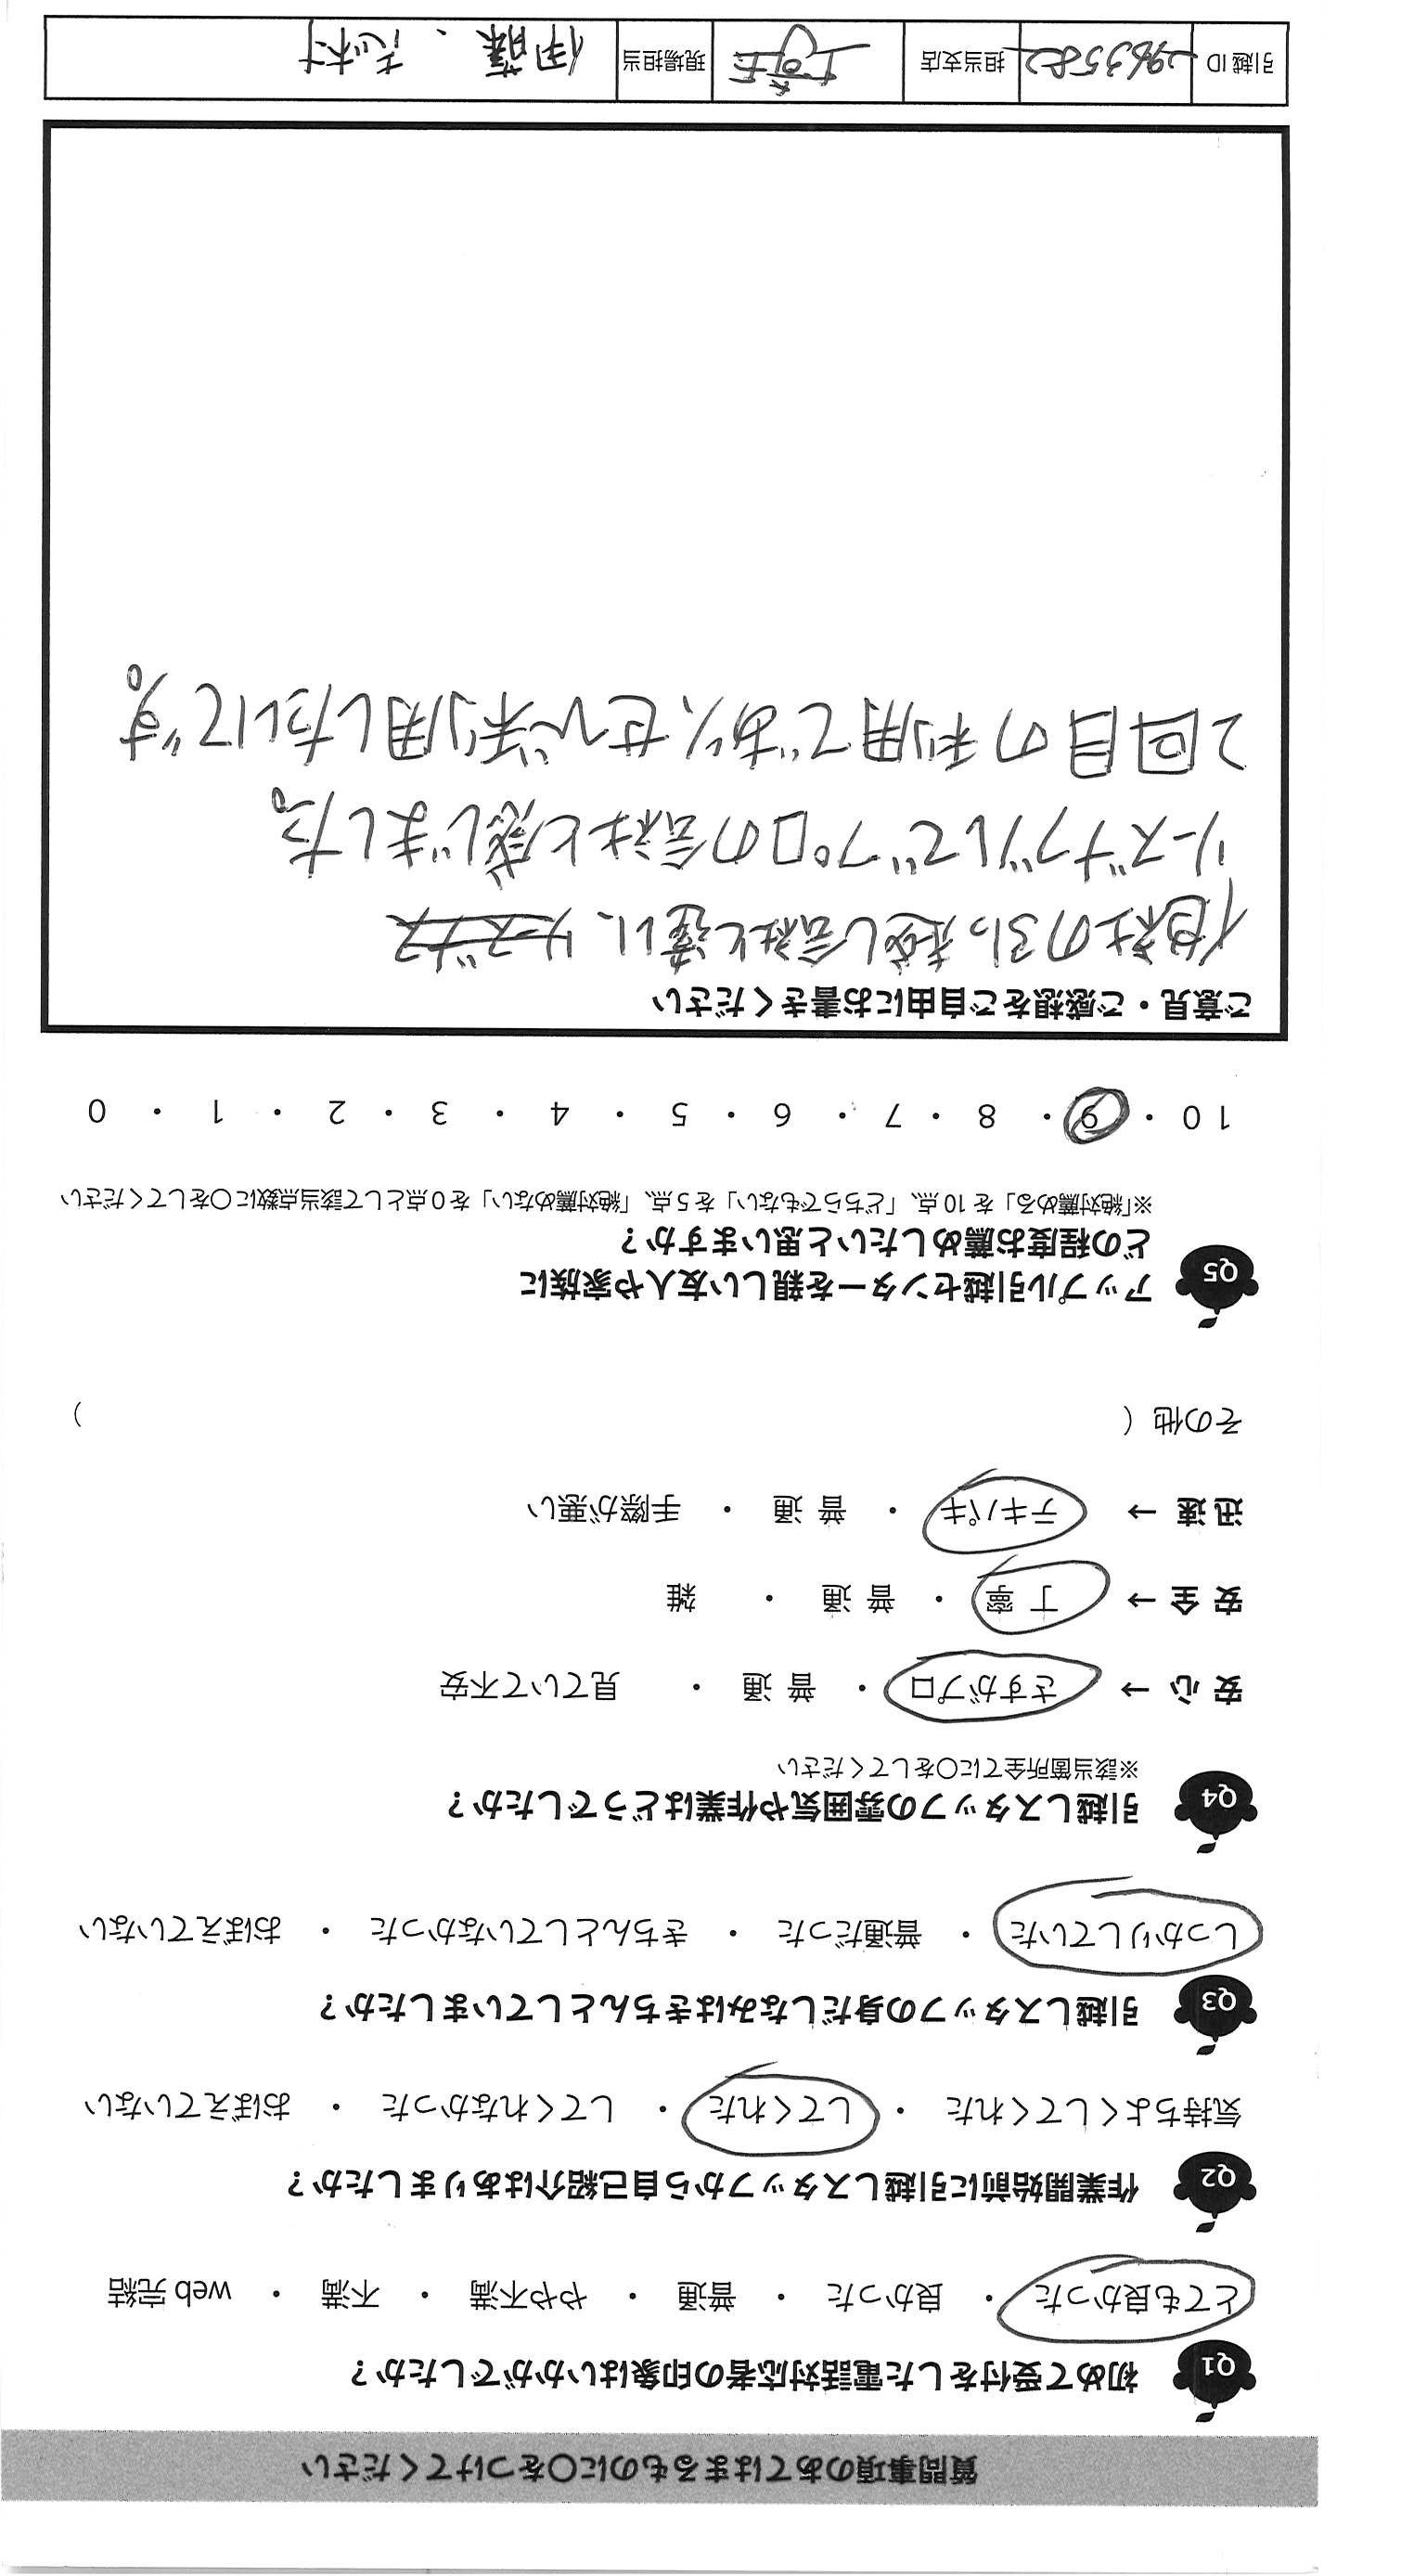 質問事項のあてはまるものに〇をつけてください
Q1 初めて受付をした電話対応者の印象はいかがでしたか？
とても良かった ・ 良かった ・ 普通 ・ やや不満 ・ 不満 ・ web 完結
Q2 作業開始前に引越しスタッフから自己紹介はありましたか？
気持ちよくしてくれた ・ してくれた ・ してくれなかった ・ おぼえていない
Q3 引越しスタッフの身だしなみはきちんとしていましたか？
しっかりしていた ・ 普通だった ・ きちんとしていなかった ・ おぼえていない
Q4 引越しスタッフの雰囲気や作業はどうでしたか？
※該当箇所全てに〇をしてください
安心 → さすがプロ ・ 普通 ・ 見ていて不安
安全 → 丁寧 ・ 普通 ・ 雑
迅速 → テキパキ ・ 普通 ・ 手際が悪い
その他（ ）
Q5 アップル引越センターを親しい友人や家族に
どの程度お薦めしたいと思いますか？
※「絶対薦める」を 10 点、「どちらでもない」を 5 点、「絶対薦めない」を 0 点として該当点数に〇をしてください
10 ・ 9 ・ 8 ・ 7 ・ 6 ・ 5 ・ 4 ・ 3 ・ 2 ・ 1 ・ 0
ご意見・ご感想をご自由にお書きください
他社の引っ越し会社と違い、
リーズナブルでプロの会社と感じました。
2回目の利用であり、ぜひ利用したいです。
引越 ID 2963582 担当支店 現場担当 伊藤、志村